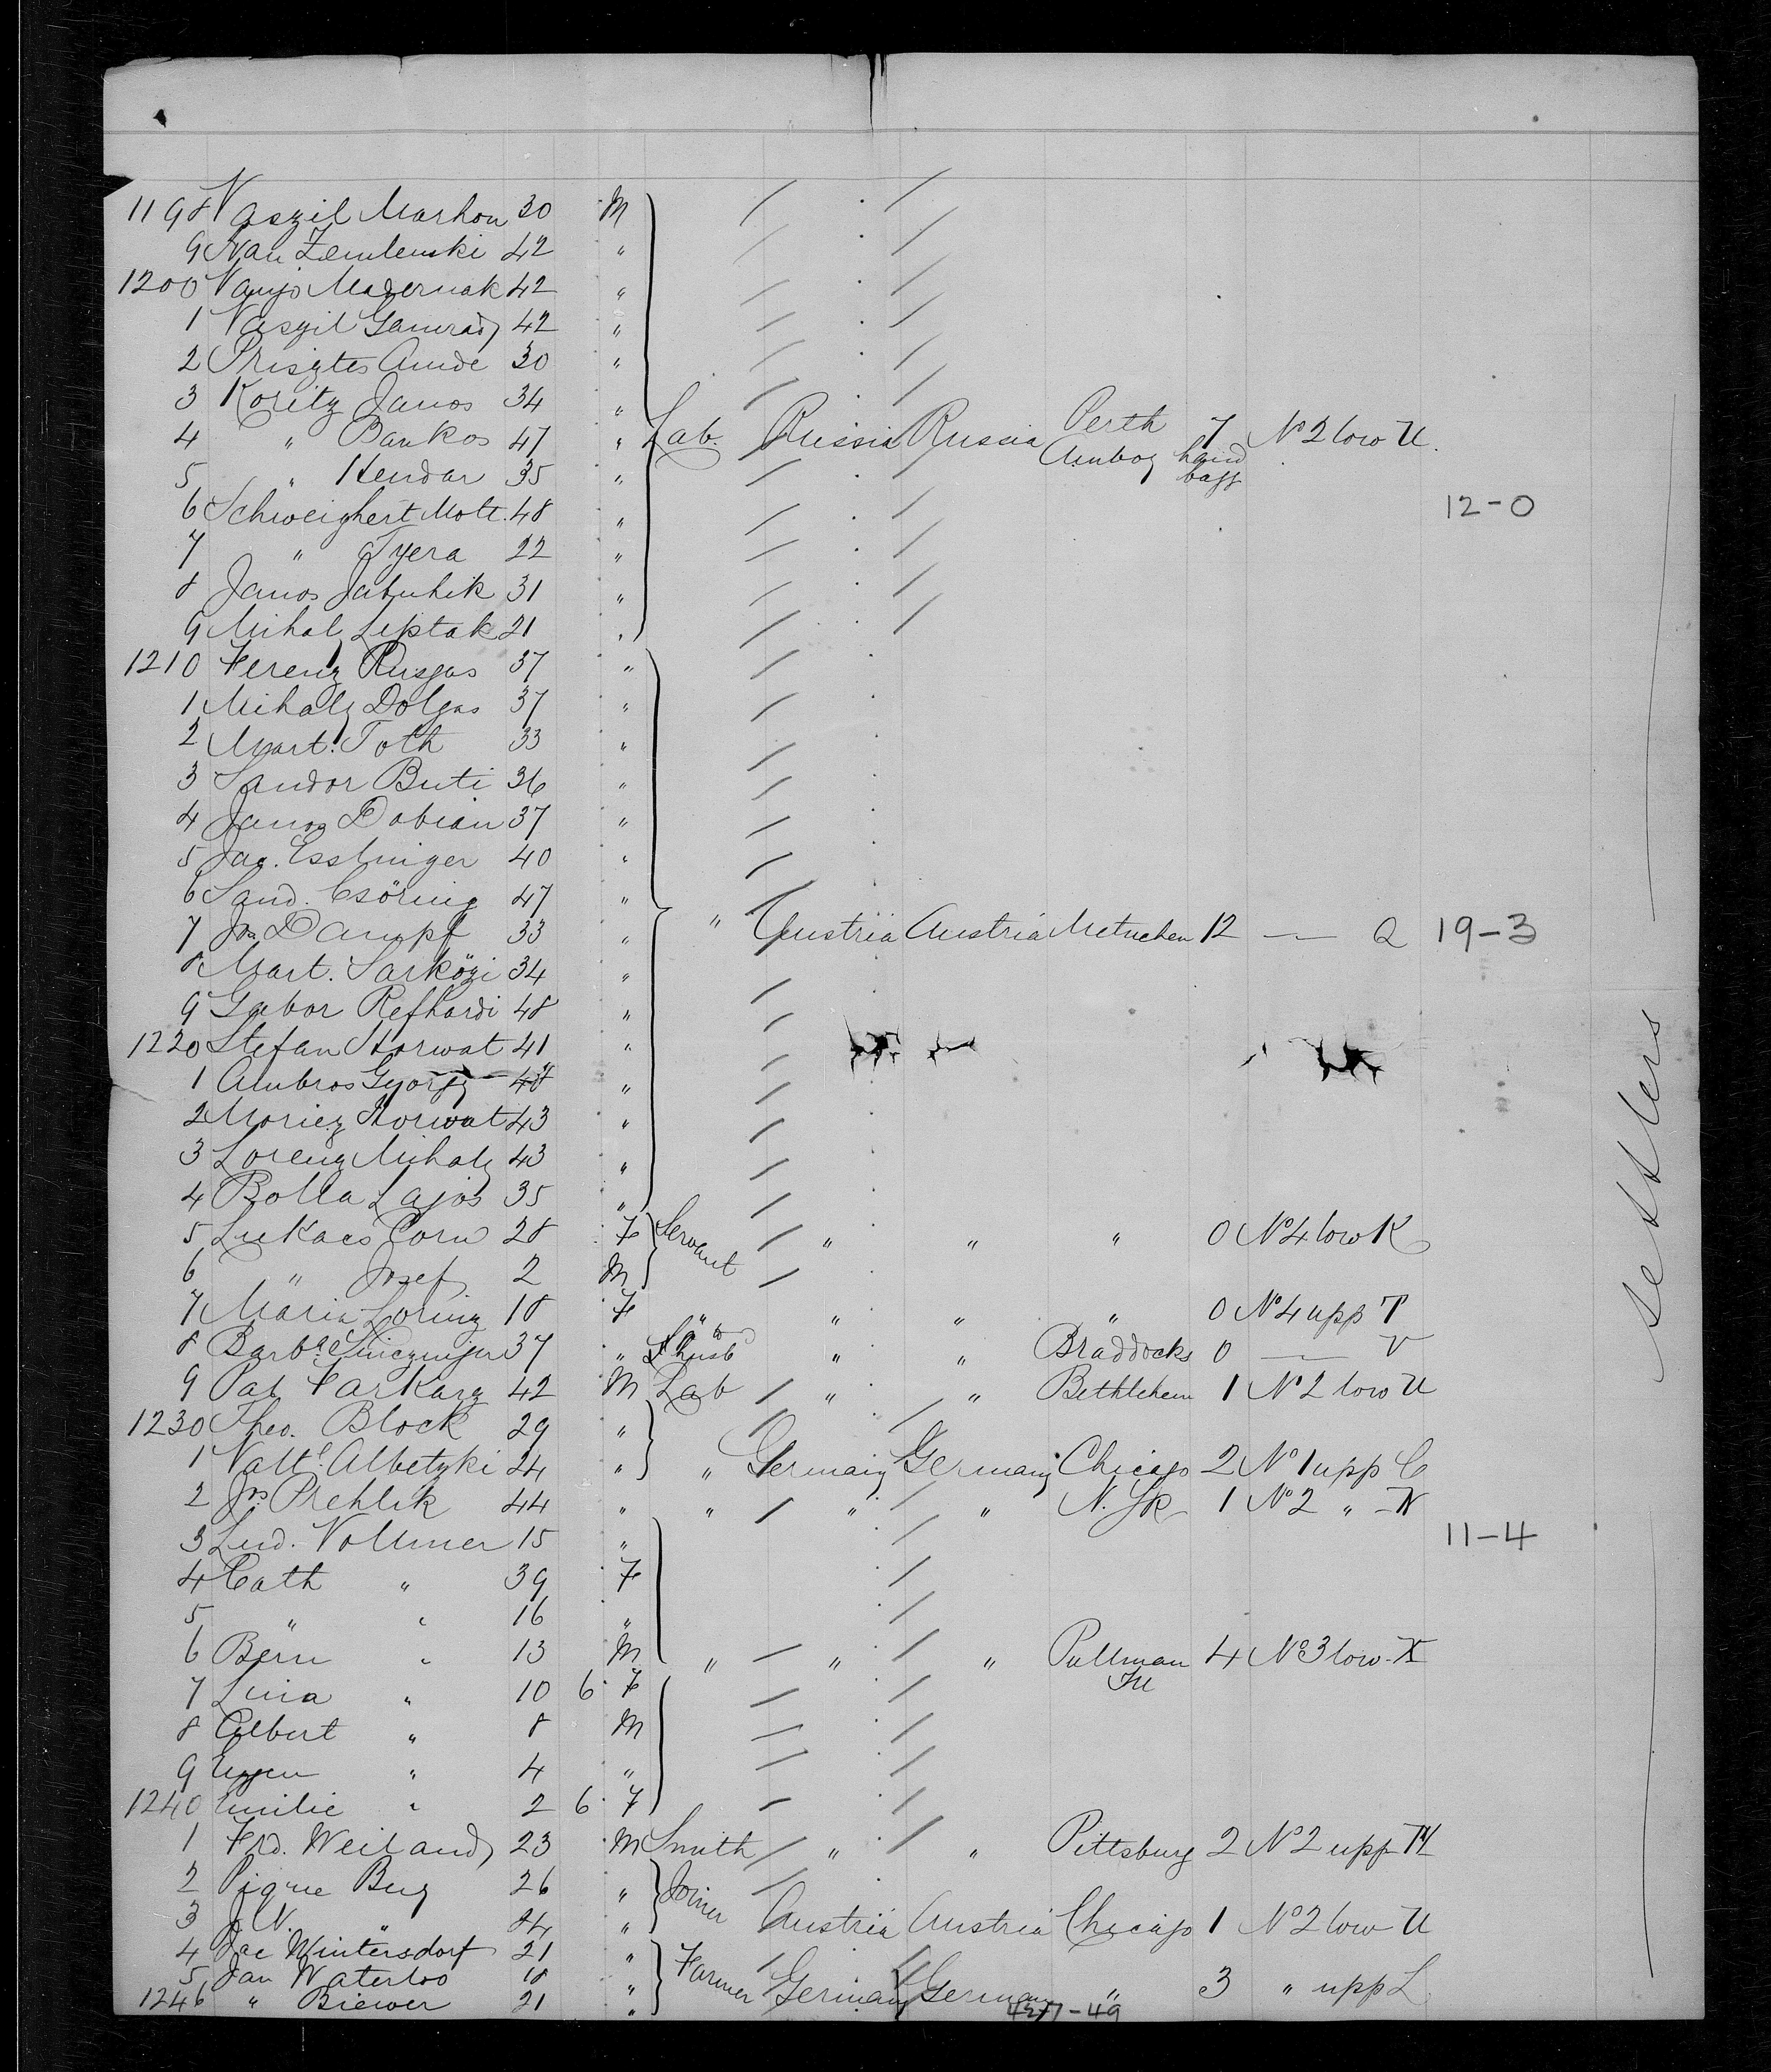 1198 Vaszil Marhou 30 M
9 Ivan Zemlenski 42 "
1200 Vanjo Madernak 42 "
1 Vaszil Gamrady 42 "
2 Prisztes Amde 30 "
3 Koritz Janos 34 "
4 " Bankos 47 " Lab. Russia Russia Perth Amboy 7 hand bagg No 2 low U.
5 " Hendar 35 "
6 Schweighert Mott. 48 " 12-0
7 " Tyera 22 "
8 Janos Jabuhik 31 "
9 Mihal Liptak 21 "
1210 Ferenz Rusgas 37 "
1 Mihaly Dolgas 37 "
2 Mart. Toth 33 "
3 Sandor Buti 36 "
4 Janos Dobian 37 "
5 Jac. Esslinger 40 "
6 Sand. Csöring 47 "
7 Jos Dampf 33 " " Austria Austria Metuchen 12 — Q 19-3
8 Mart. Sarközi 34 "
9 Gabor Refhardi 48 "
1220 Stefan Horwat 41 "
1 Ambros Gyorgy 48 "
2 Moriez Horwat 43 "
3 Lorenz Mihaly 43 "
4 Bolla Lajos 35 "
5 Lukacs Corn 28 F Servant " " " 0 No 4 low K
6 " Josef 2 M
7 Maria Loring 18 F " " " " 0 No 4 upp T
8 Barba 37 " husb " " Braddocks 0 — V
9 Pal Farkarz 42 M Lab " " Bethlehem 1 No 2 low U
1230 Theo. Block 29 "
1 Valt. Albetzki 24 " " Germany Germany Chicago 2 No 1 upp C
2 Jos Prehlik 44 " " " " N. Yk 1 No 2 " N
3 Lud. Vollmer 15 " 11-4
4 Cath " 39 F
5 " " 16 "
6 Bern " 13 M " " " Pullman Ill 4 No 3 low X
7 Lina " 10 6 F
8 Albert " 8 M
9 Eugen " 4 "
1240 Emilie " 2 6 F
1 Frd. Weiland 23 M Smith " " Pittsburg 2 No 2 upp M
2 Pigne Berg 26 " Joiner
3 J. N. " 24 " Austria Austria Chicago 1 No 2 low U
4 Jac Wintersdorf 21 "
5 Jan Waterloo 18 " Farmer Germany Germany " 3 " upp L
1246 " Biewer 21 "
4277-49
settlers